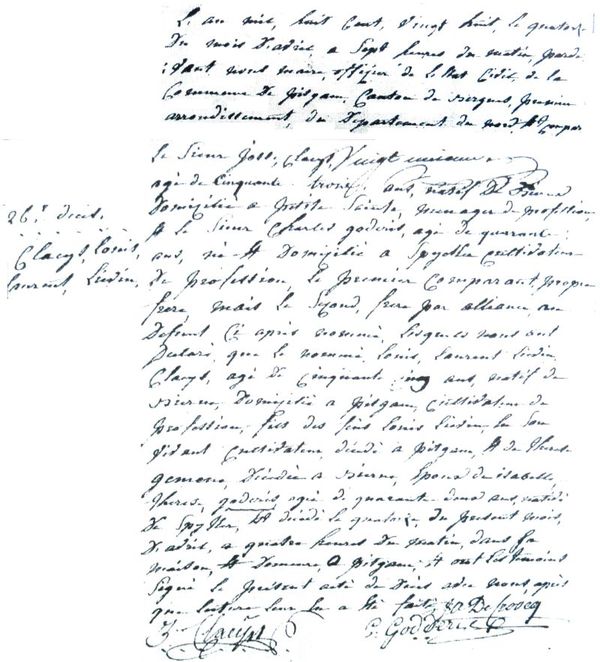 L'an mil, huit cent, vingt huit, le quatorze
Du mois D'avril, a Sept heures du matin, parde
vant nous maire, officier de l'Etat Civil, de la
Commune De pitgam, Canton de Bergues, premier
arrondissement, du Departement du nord, A Compar
Le Sieur Clacys
agé de Cinquante trois, ans, natif De
Domicilié a petite Sainte, menager de profession,
A le Sieur Charles goderis, agé de quarante
ans, né A Domicilié a Spycker Cultivateur
De profession, le premier Comparant, propre
frere, mais le Second, frere par alliance au
Defunt Ci après nommé, lesquels nous ont
Declaré, que le nommé Louis, Laurent Liévin,
Clacys, agé De Cinquante cinq ans, natif de
Bierne, Domicilié a pitgam, Cultivateur de
profession, fils des feus Louis Liévin, En Son
Vivant Cultivateur décédé a pitgam, A de
Décédée a Bierne, Epoux de isabelle
therese, goderis agée de quarante deux ans, native
De Spycker, Est décédé le quatorze, du present mois,
D'avril, a quatre heures Du matin, dans sa
maison, A Demeure, a pitgam, A ont les temoins
Signé le present acte de Décès avec nous, après
que lecture leur en a été faite,
Clacys C. Godderis
26.e décès.
Clacys, Louis,
Laurent, Liévin,